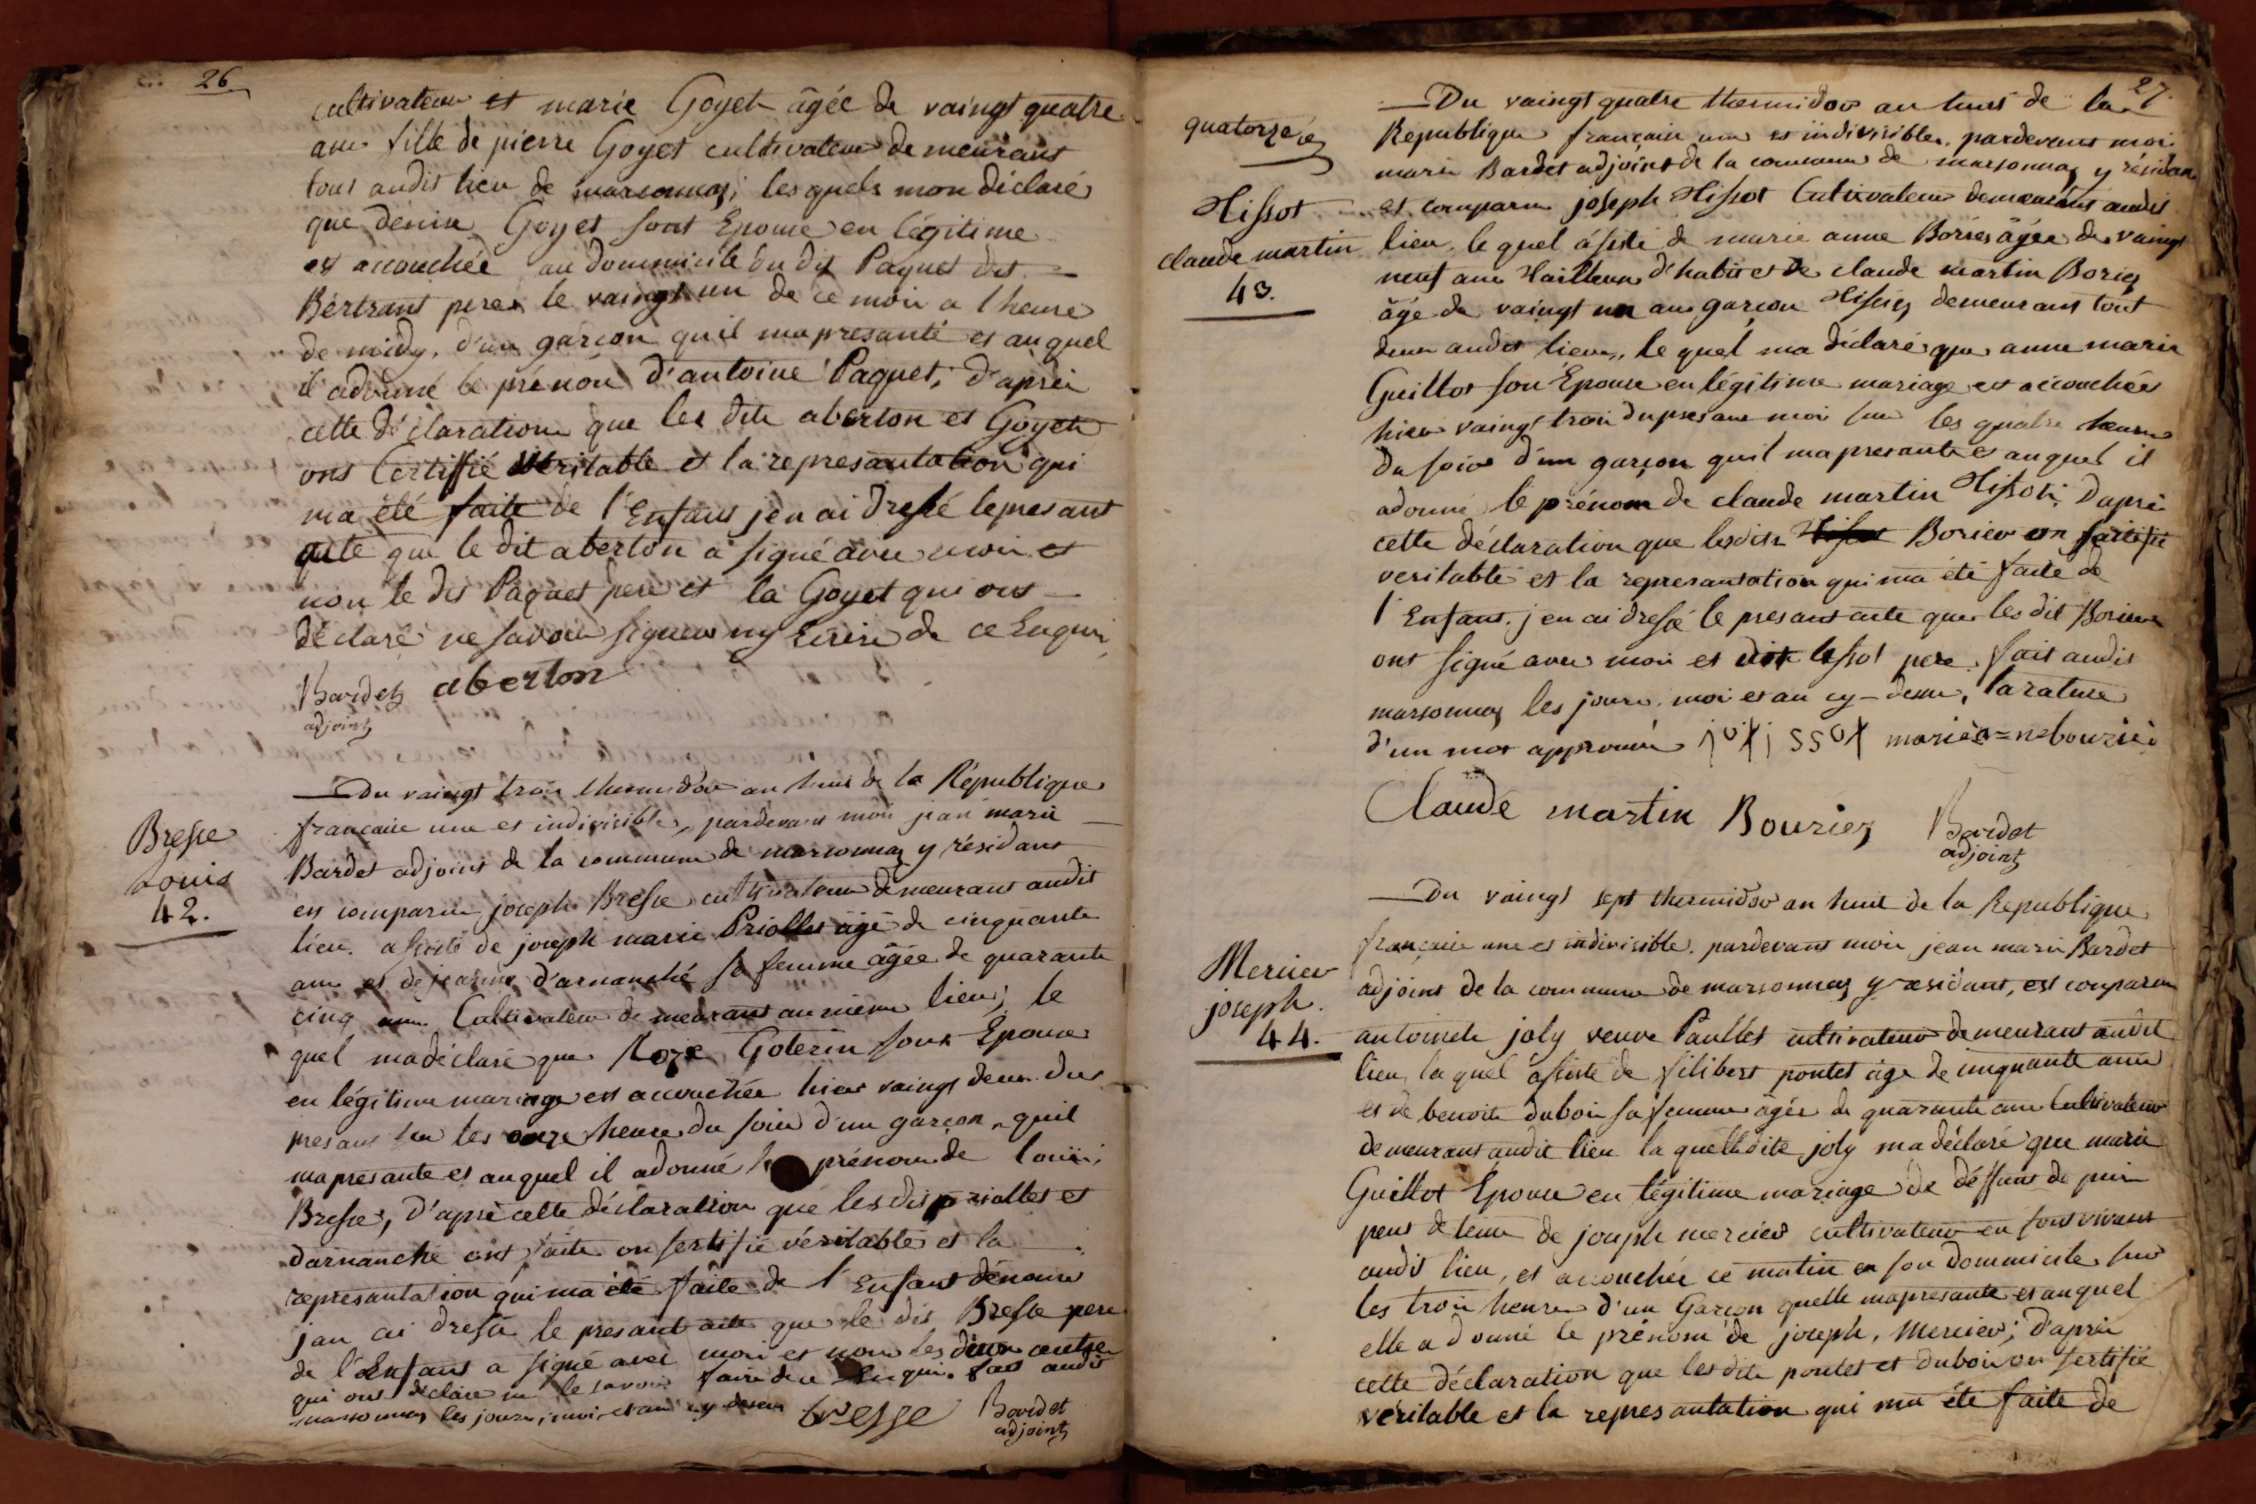 26
cultivateur et marie Goyet âgée de vaingt quatre
ans fille de pierre Goyet cultivateur demeurant
tous audit lieu de marsonnaz; lesquels mon déclaré
que denise Goyet sont Epouse en légitime
est accouchée au dommicile du dit Paquet dit
Bertrant pere le vaingt un de ce mois a lheure
de midy, d'un garçon quil ma presanté et auquel
il adonné le prénom d'antoine Paquet, d'aprèi
cette déclaration que les dits aberton et Goyet
ont Certiffié véritable et la represantation qui
ma été faite de l'Enfant jen ai dressé lepresant
acte que le dit aberton a signé avec moi et
non le dit Paquet pere et la Goyet qui ont
déclaré ne savoir signer ny Ecrire de ce Enquis,
Bardet aberton
adjoint
Du vaingt trois thermidor an huit de la République
Bresse
française une et indivisible, pardevant moi jean marie
Louis
Bardet adjoint de la commune de marsonnaz y résidant
42.
est comparu joseph Bresse cultivateur demeurant audit
lieu. assisté de joseph marie Priollet âgé de cinquante
ans et de jeanne d'arnanche sa femme âgée de quarante
cinq ans Cultivateur demeurant au même lieu; le
quel madéclaré que Roze Goterin sont Epouse
en légitime mariage est accouchée hier vaingt deux du
presant sur les onze heure du soir d'un garçon, quil
mapresante et auquel il adonné le prénom de Louis
Bresse, d'apré cette déclaration que lesdis priollet et
darnanche ont faite on sertifié véritable et la
represantation qui ma été faite de l'Enfant dénomé
jan ai dressé le presant acte que le dit Bresse pere
de l'Enfant a signé avec moi et non les deux autre
qui ont déclaré ne le savoir faire de ce Enquis. fait audit
marsonnaz les jours, moi et an cy dessu Bresse Bardet
adjoint
27.
Du vaingt quatre thermidor an huit de la
quatorze
République française une et indivisible, pardevant moi
marie Bardet adjoint de la commune de marsonnaz y résidan
Hissot
est comparu joseph Hissot Cultivateur demeurant audit
claude martin
lieu, le quel assisté de marie anne Boriès âgée de vaingt
43.
neuf ans tailleuse d'habits et de claude martin Boriez
âgé de vaingt un ans garçon demeurant tout
deux audit lieu, le quel ma déclaré que anne marie
Guillot son Epouse en légitime mariage est accouchée
hier vaingt trois dupresant moi sur les quatre heure
du soir d'un garçon quil mapresante et auquel il
adonné le prénom de claude martin Hissot; Dapré
cette déclaration que lesdits Borier on sertifié
veritable et la represantation qui ma été faite de
l'Enfant. jen ai dressé le presant acte que les dit Borier
ont signé avec moi et dit hissot pere. fait audit
marsonnaz les jours, moi et an cy-dessu, la rature
d'un mot approuvé marie a=ne bouriè
Claude martin Bouriez Bardet
adjoint
Du vaingt sept thermidor an huit de la Republique
française une et indivisible. pardevant moi jean marie Bardet
Mercier
adjoint de la commune de marsonnaz y résidant, est comparu
joseph.
44.
antoinete joly veuve Paullet cultivateur demeurant audit
lieu, la quel assisté de filibert pontet âgé de cinquante ans
et de benoite dubois sa femme âgée de quarante ans Cultivateur
demeurant audit lieu la quelle dite joly ma déclaré que marie
Guillot Epouse en légitime mariage de déffunt de puis
peut de tems de joseph mercier cultivateur en sont vivant
audit lieu, et accouchée ce matin en son dommicile sur
les trois heures d'un Garçon quelle mapresante et auquel
elle a donné le prénom de joseph, Mercier; d'aprèi
cette déclaration que les dits pontet et dubois on sertifié
véritable et la represantation qui ma été faite de